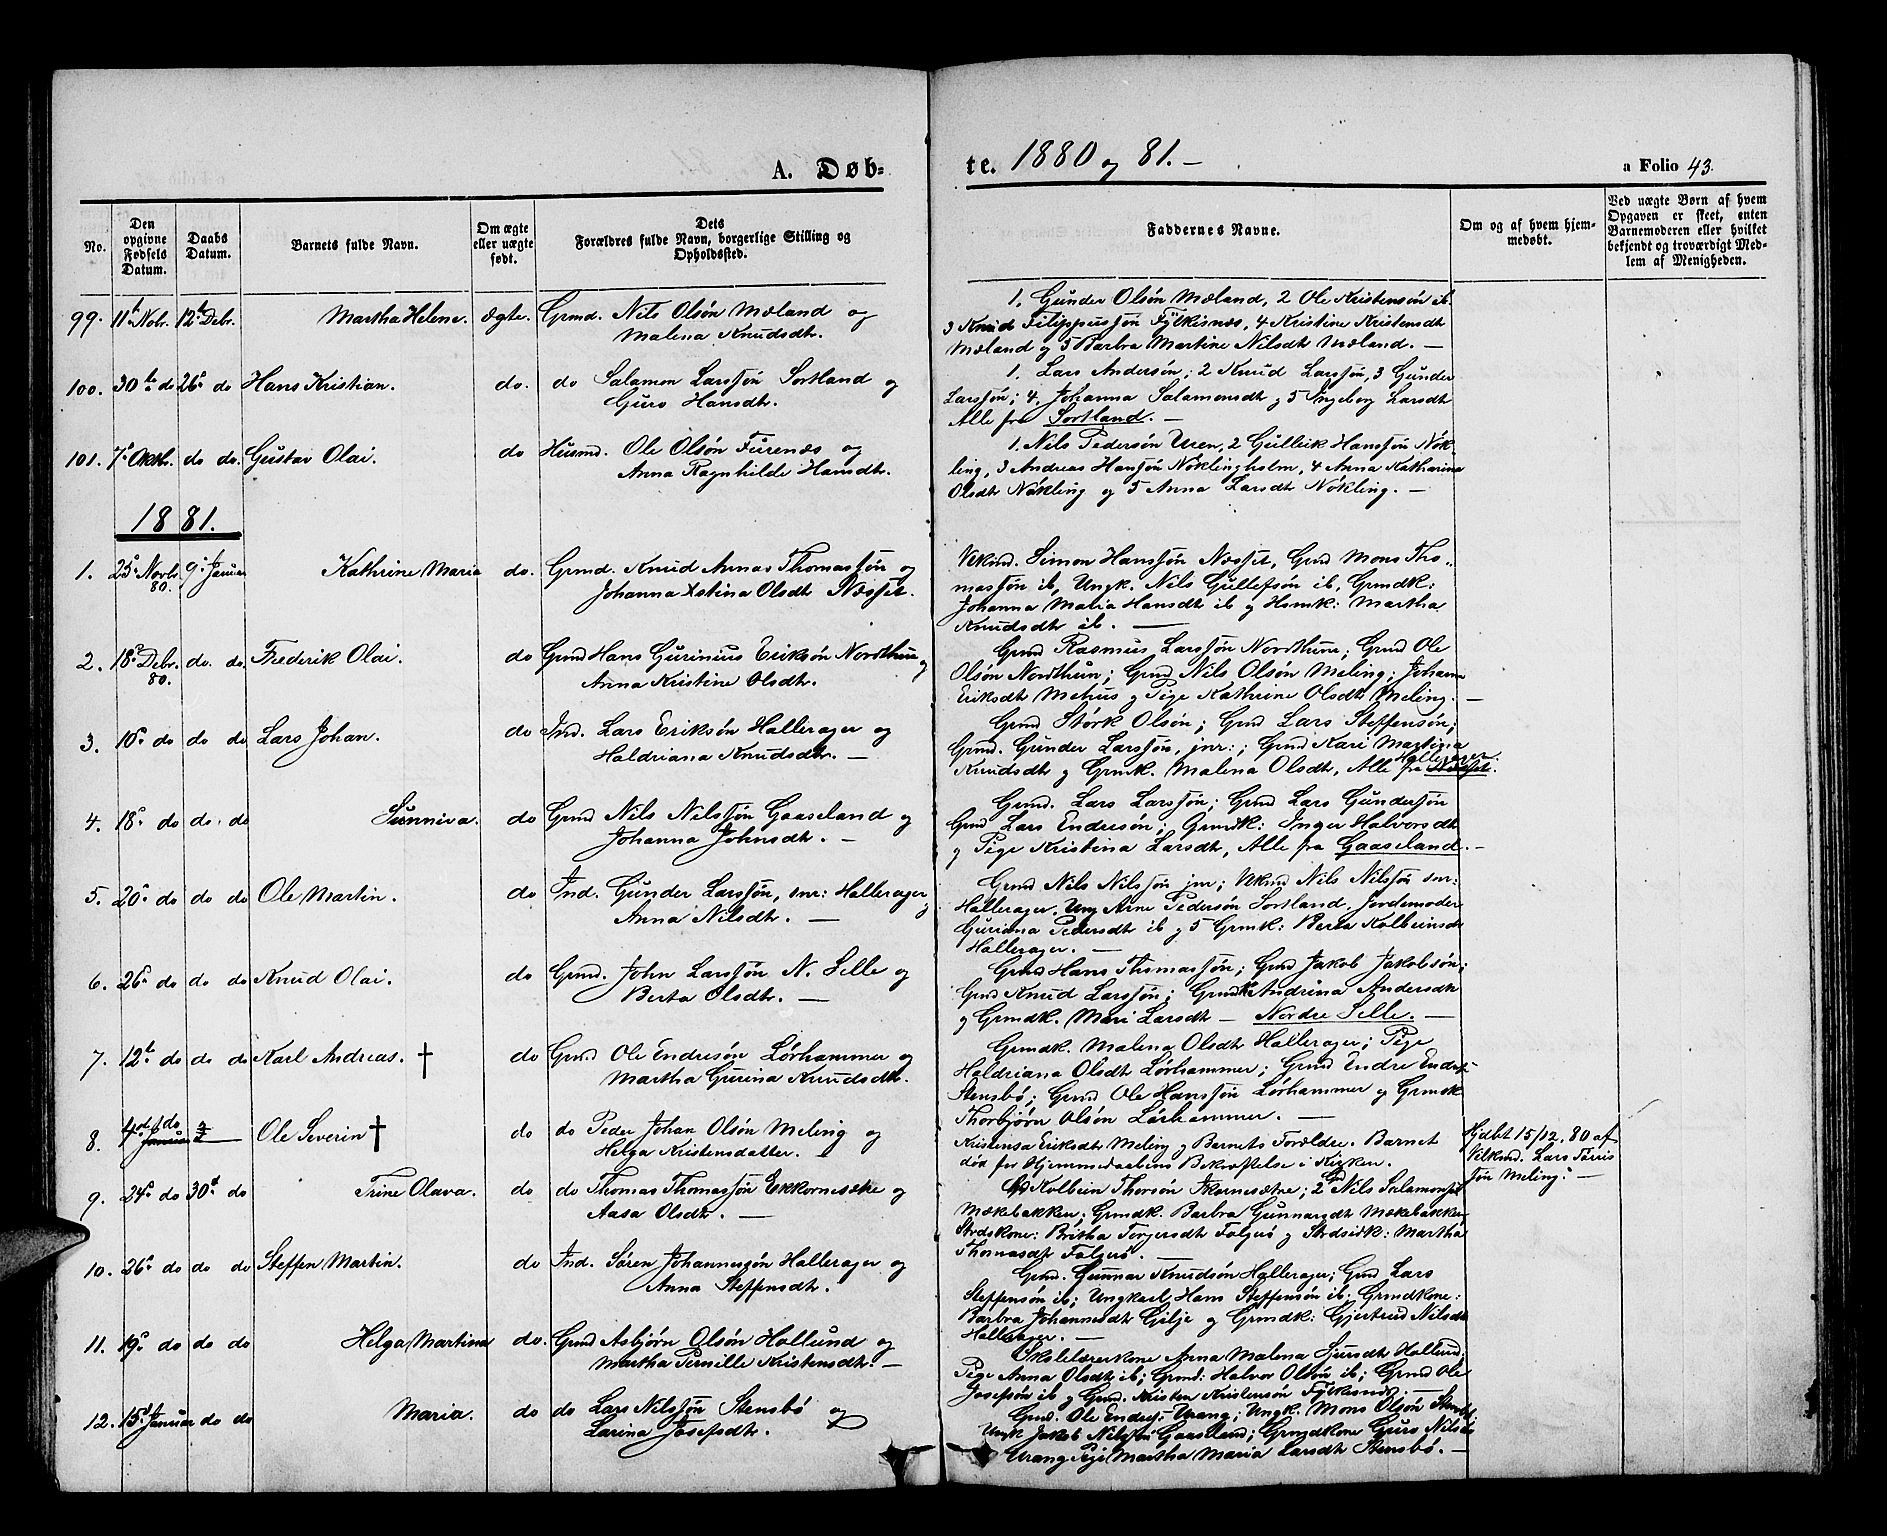 A. Døb-
te. 1880 og 81.-
a Folio 43.
No.
Den opgivne Fødsels Datum.
Daabs Datum.
Barnets fulde Navn.
Om ægte eller uægte født.
Dets Forældres fulde Navn, borgerlige Stilling og Opholdssted.
Faddernes Navne.
Om og af hvem hjemmedøbt.
Ved uægte Børn af hvem Opgaven er skeet, enten Barnemoderen eller hvilket bekjendt og troværdigt Medlem af Menigheden.
99. 11t Novbr. 12t Debr. Martha Helene. Ægte. Grmd. Nils Olsøn Mæland og
Malena Knudsdtr.
1. Gunder Olsøn Mæland, 2 Ole Kristensøn ib.
3 Knud Filippussøn Fylkisnæs, 4 Kristine Kristensdt
Mæland og 5 Barbra Martine Nilsdt Mæland. —
100. 30te do 26s do Hans Kristian. do. do Salamon Larssøn Sortland og
Guro Hansdtr.
1. Lars Andersøn; 2 Knud Larssøn, 3 Gunder
Larssøn; 4. Johanna Salamonsdt og 5 Ingeborg Larsdt
Alle fra Sortland. —
101. 7s Oktbr. do do. Gustav Olai. do Husmd. Ole Olsøn Furenæs og
Anna Ragnhilde Hansdtr.
1. Nils Pedersøn Uren, 2 Gulleik Hanssøn Nøk-
ling, 3 Andreas Hanssøn Nøklingholm, 4 Anna Katharina
Olsdt Nøkling og 5 Anna Larsdt Nøkling. —
1881.
1. 25s Novbr. 80. 9s Januar Kathrine Maria do. Grmd. Knud Annas Thomassøn og
Johanna Xstina Olsdt Næsset.
Vekmd. Simon Hanssøn Næsset, Grmd Mons Tho-
massøn ib, Ungk. Nils Gullefsøn ib, Grmdk:
Johanna Malia Hansdt ib og Hsmk: Martha
Knudsdt ib. —
2. 18s Debr. 80. do. do. Frederik Olai. do Grmd Hans Gurinius Eriksøn Nordthun og
Anna Kristine Olsdtr.
Grmd Rasmus Larssøn Nordthun; Grmd Ole
Olsøn Nordthun; Grmd Nils Olsøn Meling; Johanna
Eriksdt Mehus og Pige Kathrine Olsdt Meling. —
3. 10s do do do Lars Johan. do Ind. Lars Eriksøn Hallerager og
Haldriana Knudsdtr. —
Grmd Størk Olsøn; Grmd Lars Steffensøn;
Grmd. Gunder Larssøn, jnr:; Grmd Kari Martina
Knudsdtr og Grmk. Malena Olsdt, Alle fra Næsset. Hallerager.
4. 18s do do. do Sunniva. do Grmd Nils Nilssøn Gaaseland og
Johanna Johnsdtr. —
Grmd. Lars Larssøn; Grmd Lars Gundersøn
Grmd Lars Endresøn; Grmdk: Inger Halvorsdt
og Pige Kristina Larsdt, Alle fra Gaaseland. —
5. 20s do do do Ole Martin. do Ind. Gunder Larssøn, snr: Hallerager og
Anna Nilsdtr. —
Grmd Nils Nilssøn jnr; Vekmd Nils Nilssøn snr:
Hallerager. Ung Arne Pedersøn Sortland, Jordemoder
Guriana Pedersdt ib og 5 Grmk: Berta Kolbeinsdt
Hallerager. —
6. 26s do do do Knud Olai. do Grmd. John Larssøn N. Selle og
Berta Olsdtr. —
Grmd Hans Thomassøn; Grmd Jakob Jakobsøn;
Grmd Knud Larssøn; Grmdk Andrina Andersdt
og Grmdk. Mari Larsdt — Nordre Selle. —
7. 12t do do do Karl Andreas. † do Grmd Ole Endresøn Lørhammer og
Martha Gurina Knudsdtr.
Grmdk. Malena Olsdt Hallerager; Pige
Haldriana Olsdt Lørhammer; Grmd Endre Endres:
Stensbø; Grmd Ole Hanssøn Lørhammer og Grmdk
Thorbjørn Olsøn Lørhammer. —
8. Januar do Ole Severin † do do Peder Johan Olsøn Meling og
Helga Kristensdatter.
Kristensa Eriksdt Meling og Barnets Forældre. Barnet
død før Hjemmedaabens Bekræftelse i Kirken.
Hjdbt 15/12. 80 af
Velkmd. Lars Tørris
søn Meling. —
9. 24s do 30te do Trine Olava. do do Thomas Thomassøn Ekkornesætre og
Aasa Olsdtr. —
Kolbein Thorsøn Ikornesætre; 2 Nils Salamonsøn
Mækebakken; Grmdk. Barbra Gunnarsdt Mækebakken,
Strdskone: Britha Torgersdt Folgerø og Strdsidk: Martha
Thomasdt Folgerø. —
10. 26s do do do Steffen Martin. do Ind. Søren Johannessøn Hallerager og
Anna Steffensdtr.
Grmd. Gunnar Knudsøn Hallerager; Grmd Lars
Steffensøn ib; Ungkarl Hans Steffensøn ib. Grmdkone:
Barbra Johannesdt Gilje og Grmdk: Gjertrud Nilsdt
Hallerager. —
11. 19s do do do Helga Martina do. Grmd Asbjørn Olsøn Hollund og
Martha Pernille Kristensdtr. —
Skolelærerkone Anna Malena Sjursdt Hollund;
Pige Anna Olsdt ib; Grmd: Halvor Olsøn ib; Grmd Ole
Josefsøn ib og Grmd. Kristen Kristensøn Fylkesnes. —
12. 15s Januar do do Maria. do do Lars Nilssøn Stensbø og
Larina Josefsdtr.
Grmd. Ole Endres: Urang; Ungk. Mons Olsøn Stensbø;
Ungk Jakob Nilssøn Gaaseland; Grmdkone Guro Nilsdt
Urang Pige Martha Maria Larsdt Stensbø. —